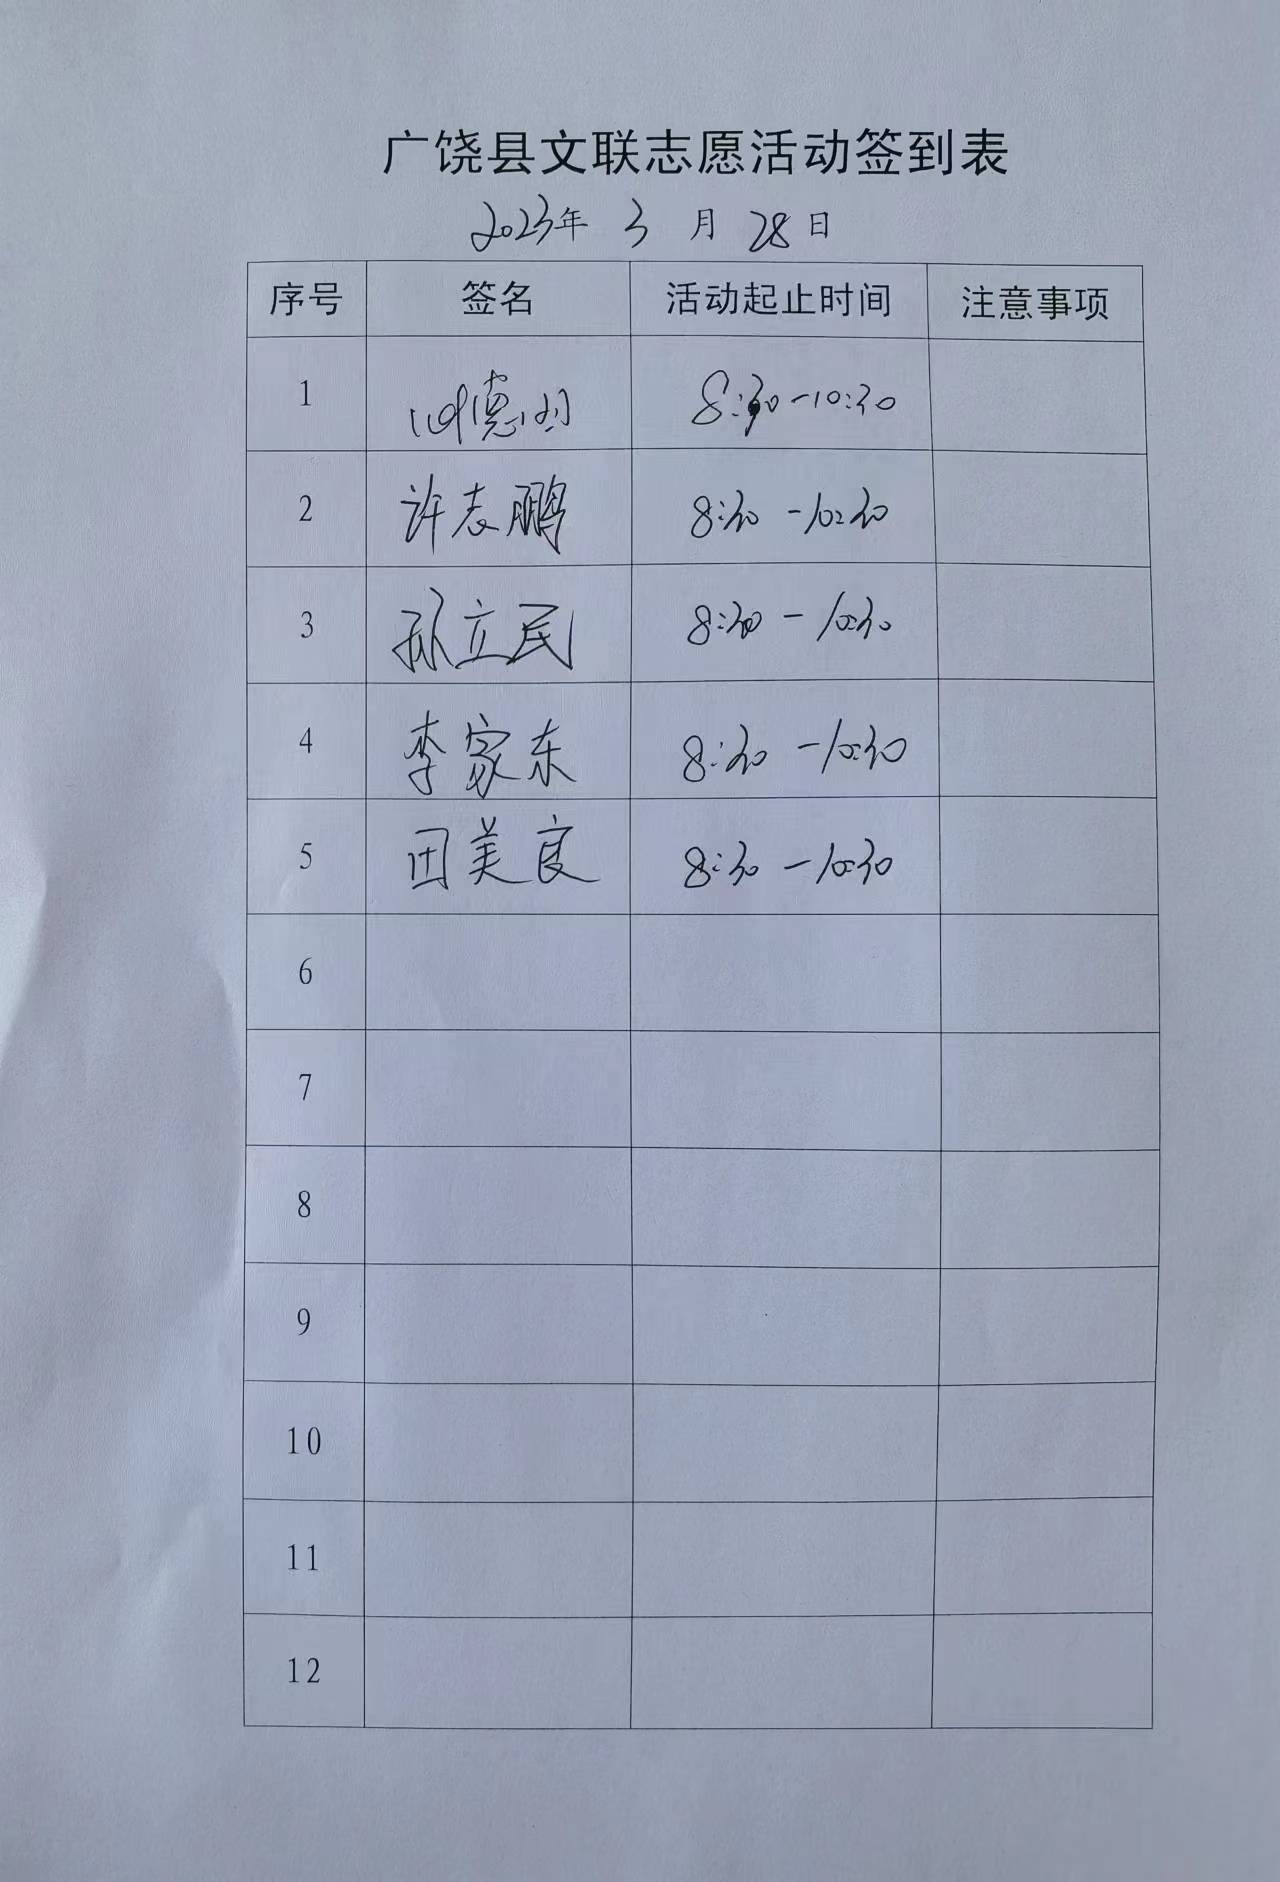 广饶县文联志愿活动签到表
2023年 3 月 28 日
序号 签名 活动起止时间 注意事项
1 8:30-10:30
2 许志鹏 8:30-10:30
3 孙立民 8:30-10:30
4 李家东 8:30-10:30
5 田美良 8:30-10:30
6
7
8
9
10
11
12